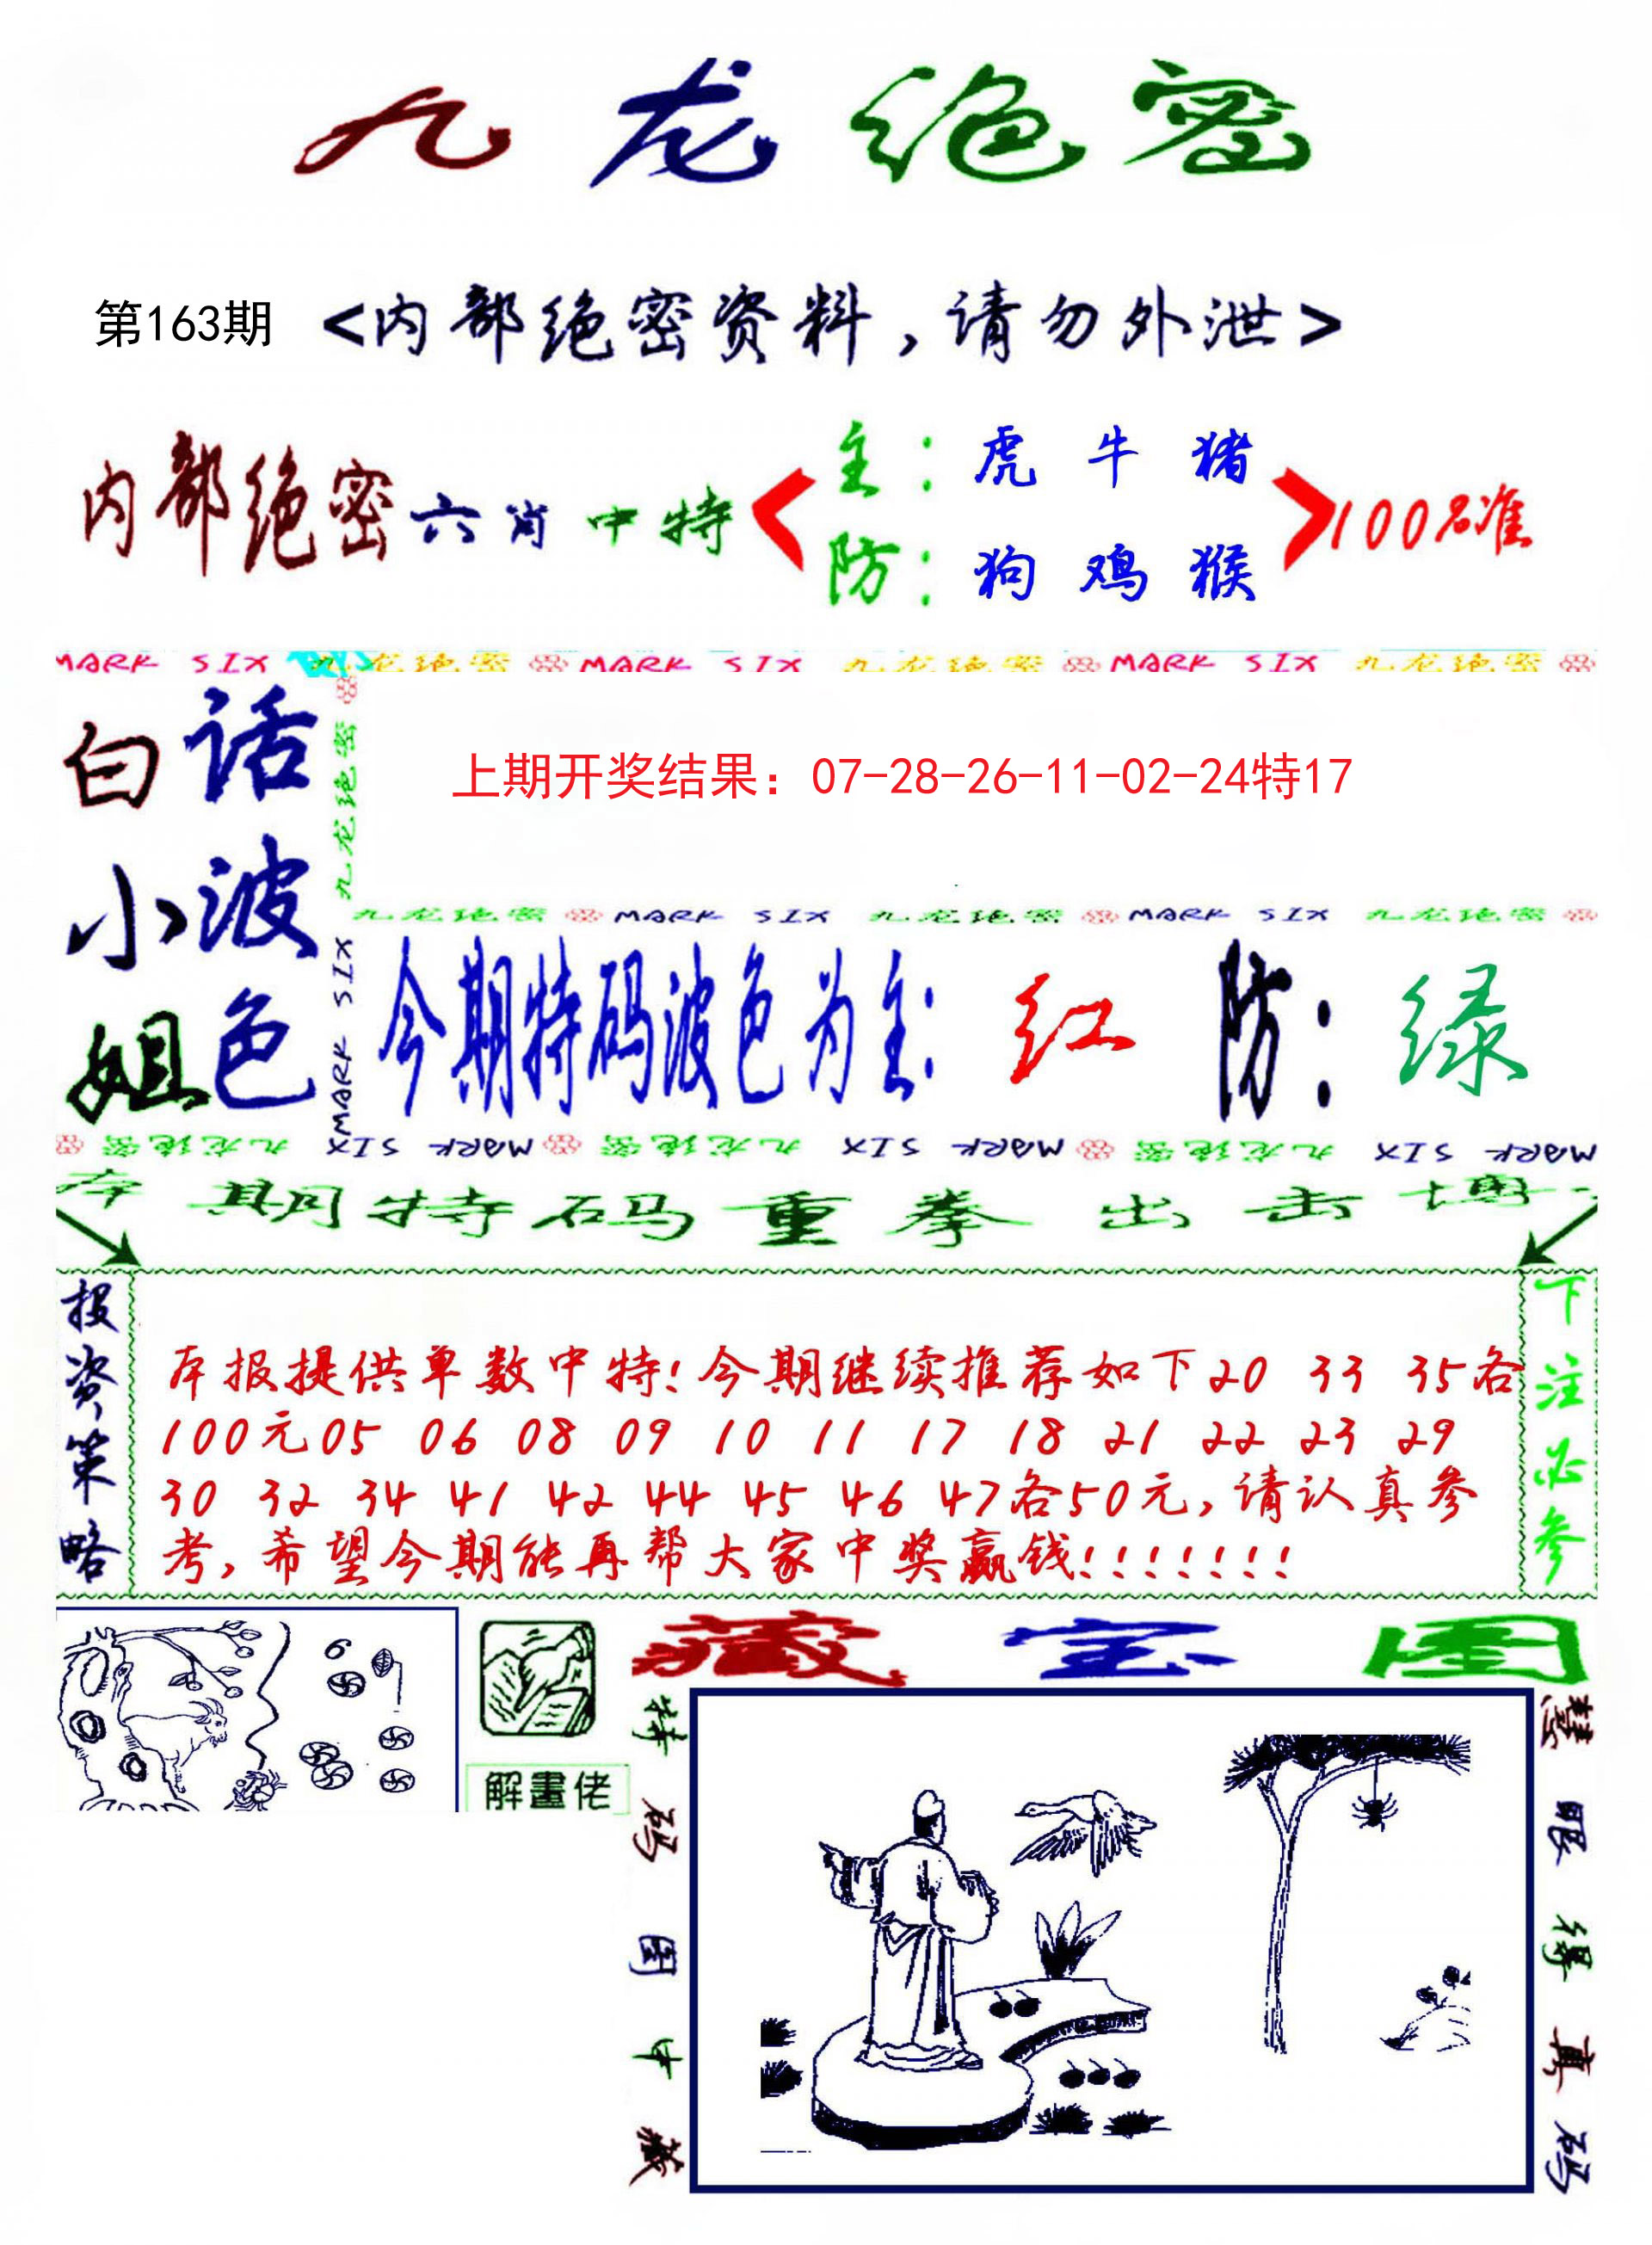 九龙绝密
第163期 <内部绝密资料,请勿外泄>
内部绝密六肖中特
主: 虎 牛 猪
防: 狗 鸡 猴
100%准
MARK SIX 九龙绝密 MARK SIX 九龙绝密 MARK SIX 九龙绝密
白话
小波
姐色
九龙绝密
MARK SIX
上期开奖结果：07-28-26-11-02-24特17
九龙绝密 MARK SIX 九龙绝密 MARK SIX 九龙绝密
今期特码波色为主: 红 防: 绿
MARK SIX 九龙绝密 MARK SIX 九龙绝密 MARK SIX 九龙绝密
本期特码重拳出击博
投资策略
本报提供单数中特!今期继续推荐如下20 33 35各
100元05 06 08 09 10 11 17 18 21 22 23 29
30 32 34 41 42 44 45 46 47各50元,请认真参
考,希望今期能再帮大家中奖赢钱!!!!!!!
下注必参
6
解畫佬
藏宝图
特码图中藏
慧眼得真码